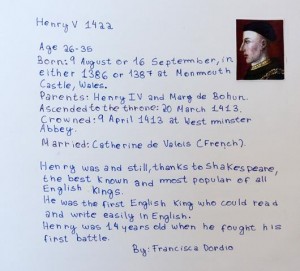 Henry V 1422
Age 26-35
Born: 9 August or 16 September, in
either 1386 or 1387 at Monmouth
Castle, Wales.
Parents: Henry IV and Mary de Bohun.
Ascended to the throne: 20 March 1413.
Crowned: 9 April 1413 at West minster
Abbey.
Married: Catherine de Valois (French).
Henry was and still, thanks to Shakespeare,
the best known and most popular of all
English Kings.
He was the first English King who could read
and write easily in English.
Henry was 14 years old when he fought his
first battle.
By: Francisca Dordio